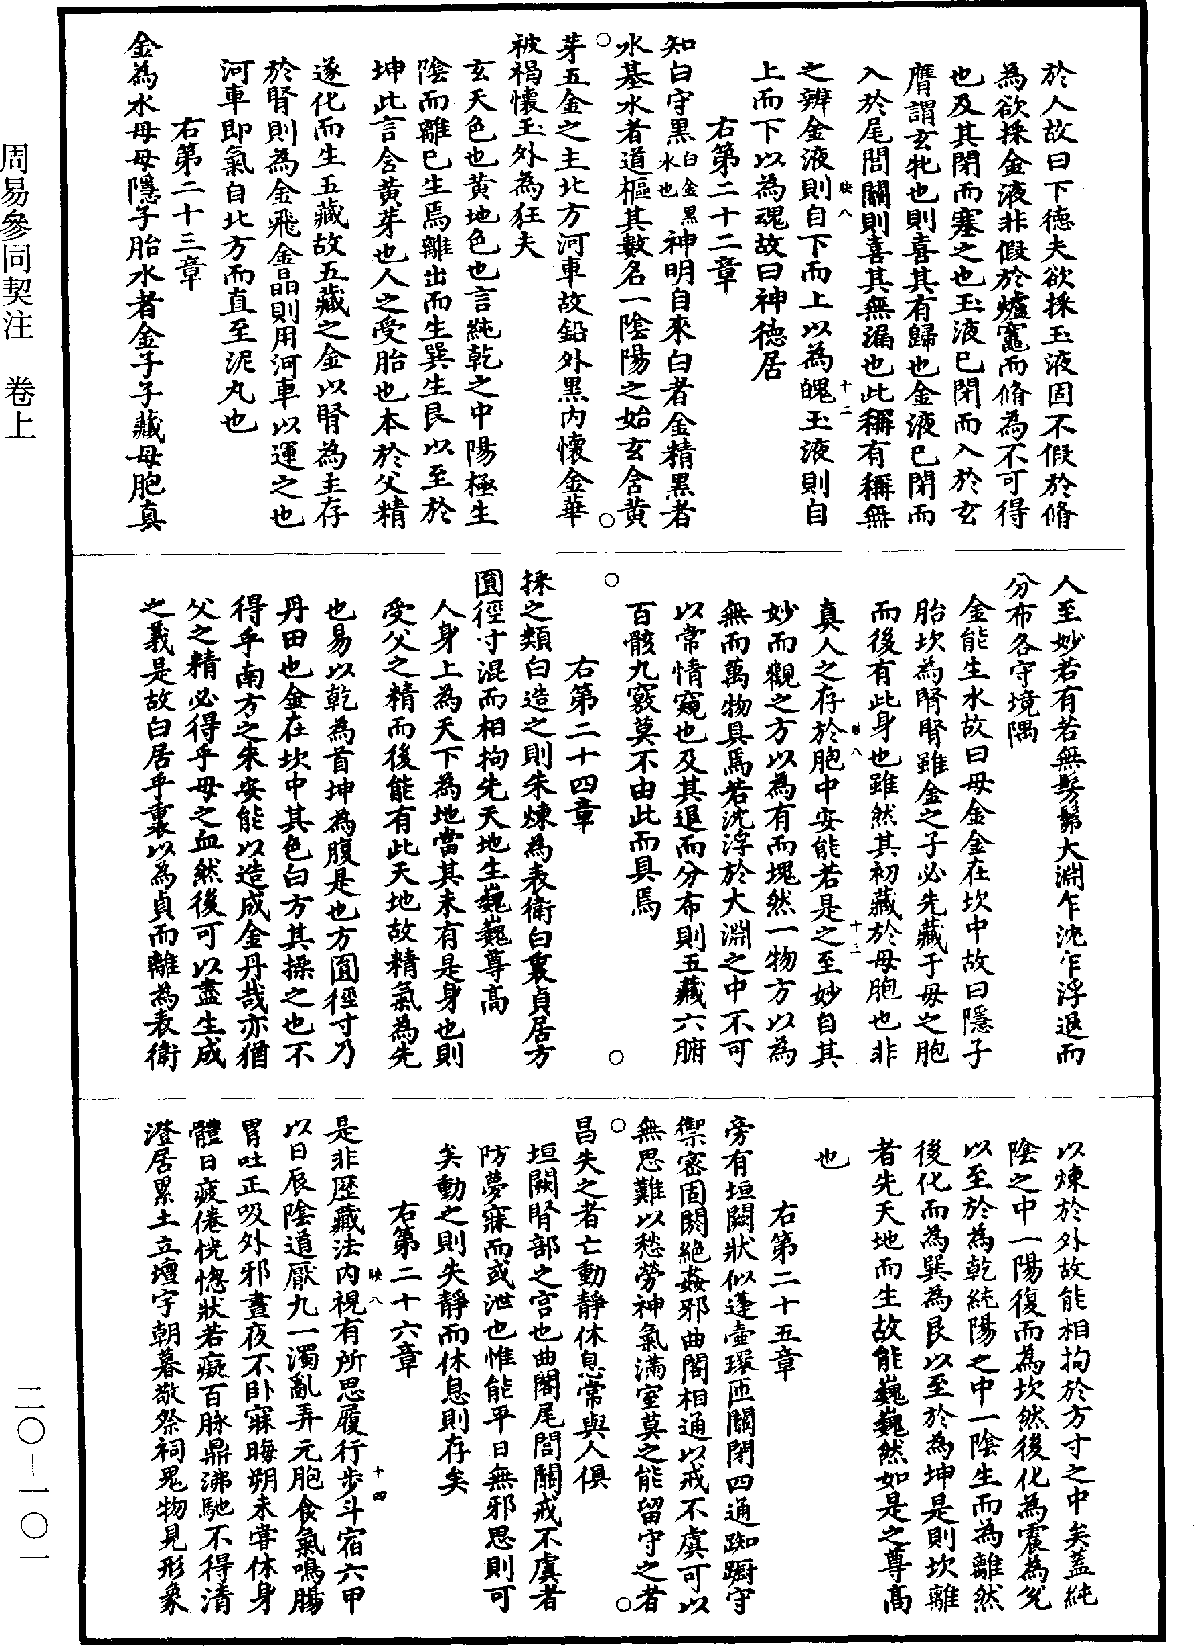 周易參同契注　卷上
二〇—一〇一
於人故曰下德夫欲採玉液固不假於脩
為欲採金液非假於爐竈而脩為不可得
也及其閉而塞之也玉液巳閉而入於玄
膺謂玄牝也則喜其有歸也金液巳閉而
入於尾閭關則喜其無漏也此稱有稱無
之辨金液則自下而上以為魄玉液則自
映八　十二
上而下以為魂故曰神德居
右第二十二章
知白守黑白金黑水也神明自來白者金精黑者
水基水者道樞其數名一陰陽之始玄含黃
芽五金之主北方河車故鉛外黑內懷金華
被褐懷玉外為狂夫
玄天色也黃地色也言純乾之中陽極生
陰而離巳生焉離出而生巽生艮以至於
坤此言含黃芽也人之受胎也本於父精
遂化而生五藏故五藏之金以腎為主存
於腎則為金飛金晶則用河車以運之也
河車即氣自北方而直至泥丸也
右第二十三章
金為水母母隱子胎水者金子子藏母胞真
人至妙若有若無髣髴大淵乍沈乍浮退而
分布各守境隅
金能生水故曰母金金在坎中故曰隱子
胎坎為腎腎雖金之子必先藏于母之胞
而後有此身也雖然其初藏於母胞也非
映八　十三
真人之存於胞中安能若是之至妙自其
妙而觀之方以為有而塊然一物方以為
無而萬物具焉若沈浮於大淵之中不可
以常情窺也及其退而分布則五藏六腑
百骸九竅莫不由此而具焉
右第二十四章
採之類白造之則朱煉為表衛白裏貞居方
圓徑寸混而相拘先天地生巍巍尊高
人身上為天下為地當其未有是身也則
受父之精而後能有此天地故精氣為先
也易以乾為首坤為腹是也方圓徑寸乃
丹田也金在坎中其色白方其採之也不
得乎南方之朱安能以造成金丹哉亦猶
父之精必得乎母之血然後可以盡生成
之義是故白居乎裏以為貞而離為表衛
以煉於外故能相拘於方寸之中矣蓋純
陰之中一陽復而為坎然後化為震為兌
以至於為乾純陽之中一陰生而為離然
後化而為巽為艮以至於為坤是則坎離
者先天地而生故能巍巍然如是之尊高
也
右第二十五章
旁有垣闕狀似蓬壺環匝關閉四通踟躕守
禦密固閼絕姦邪曲閣相通以戒不虞可以
無思難以愁勞神氣滿室莫之能留守之者
昌失之者亡動靜休息常與人俱
垣闕腎部之宮也曲閣尾閭關戒不虞者
防夢寐而或泄也惟能平日無邪思則可
矣動之則失靜而休息則存矣
右第二十六章
映八　十四
是非歷藏法內視有所思履行步斗宿六甲
以日辰陰道厭九一濁亂弄元胞食氣鳴腸
胃吐正吸外邪晝夜不臥寐晦朔未嘗休身
體日疲倦恍惚狀若癡百脉鼎沸馳不得清
澄居累土立壇宇朝暮敬祭祠鬼物見形象